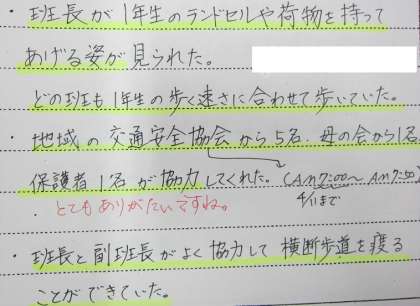 ・班長が1年生のランドセルや荷物を持って
あげる姿が見られた。
どの班も1年生の歩く速さに合わせて歩いていた。
・地域の交通安全協会から5名、母の会から1名
保護者1名が協力してくれた。(AM7:00〜AM7:50)
・とてもありがたいですね。
4/11まで
・班長と副班長がよく協力して横断歩道を渡る
ことができていた。